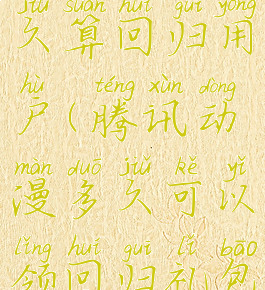 jiǔ suàn huí guī yòng
久算回归用
hù téng xùn dòng
户(腾讯动
màn duō jiǔ kě yǐ
漫多久可以
lǐng huí guī lǐ bāo
领回归礼包